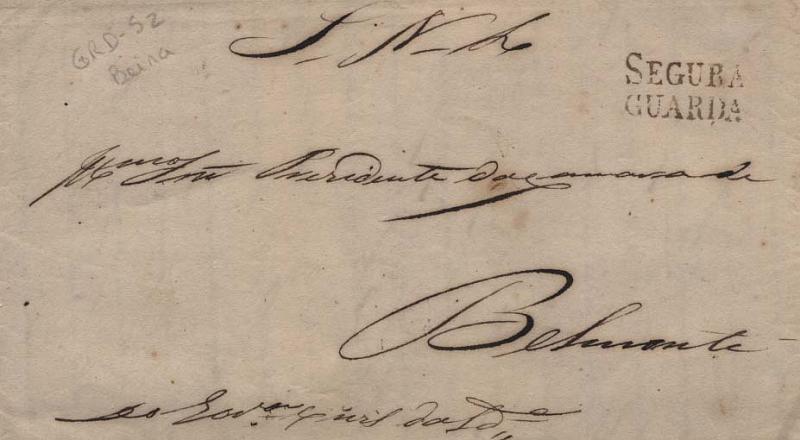 GRD-52
Beira
S. N. L.
SEGURA
GUARDA
Illmo Snr Prezidente da Camara de
Belmonte
Do Govor Civil da